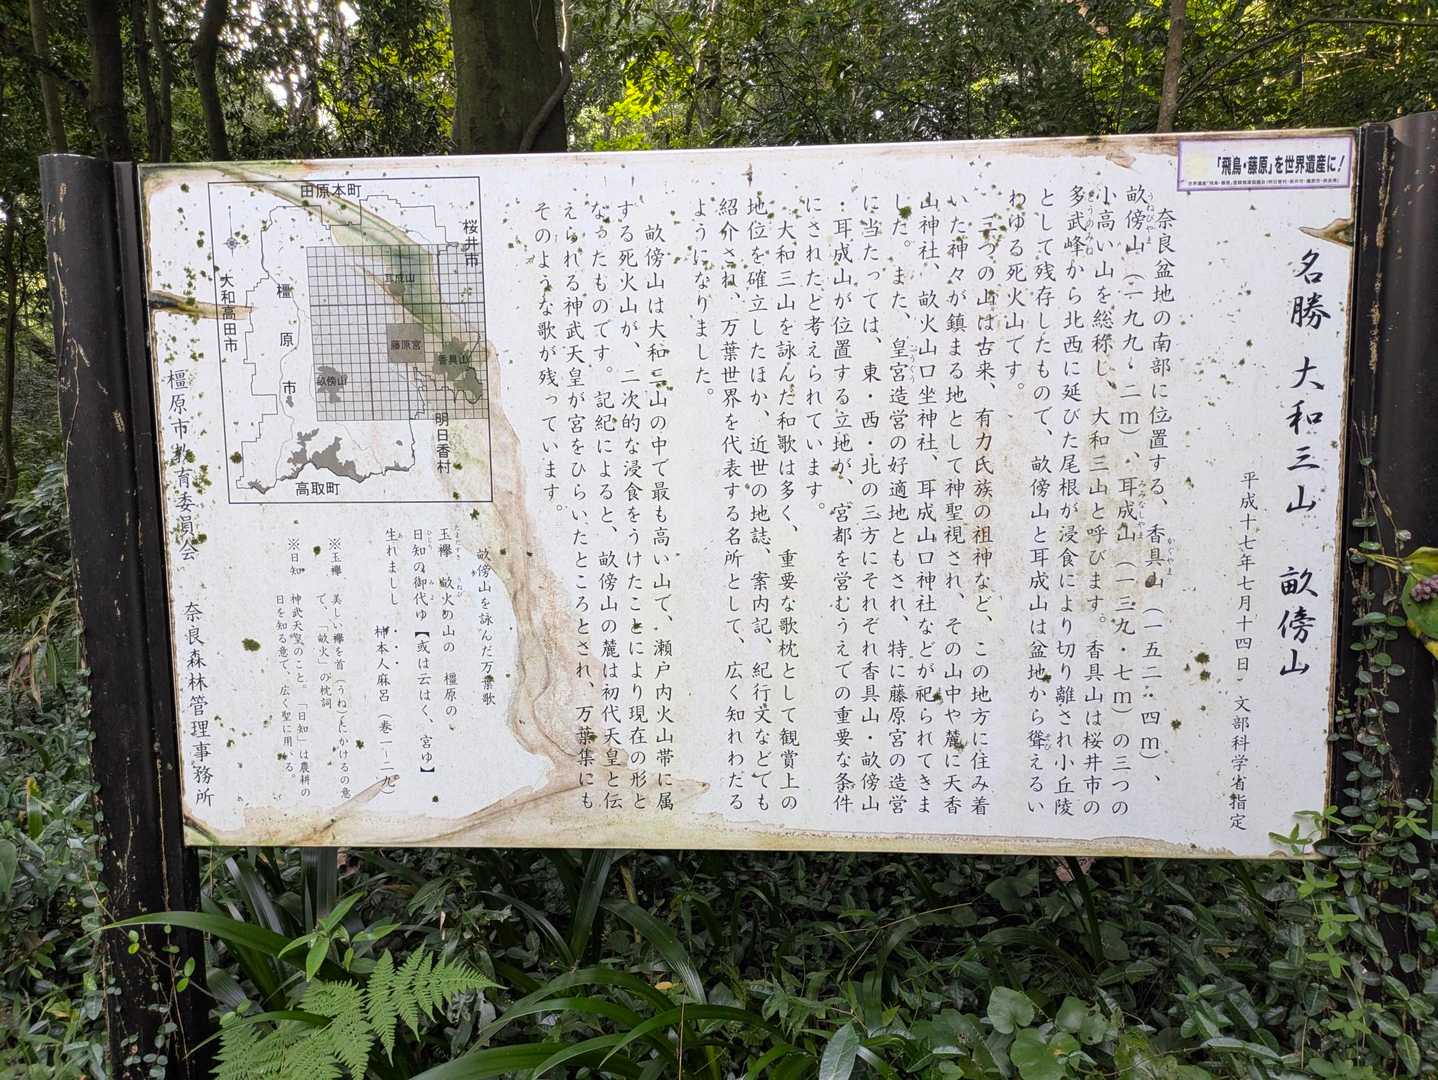 「飛鳥・藤原」を世界遺産に!
名勝 大和三山 畝傍山
平成十七年七月十四日 文部科学省指定
奈良盆地の南部に位置する、香具山(一五二・四m)、
畝傍山(一九九・二m)、耳成山(一三九・七m)の三つの
小高い山を総称し、大和三山と呼びます。香具山は桜井市の
多武峰から北西に延びた尾根が浸食により切り離され小丘陵
として残存したもので、畝傍山と耳成山は盆地から聳えるい
わゆる死火山です。
三つの山は古来、有力氏族の祖神など、この地方に住み着
いた神々が鎮まる地として神聖視され、その山中や麓に天香
山神社、畝火山口坐神社、耳成山口神社などが祀られてきま
した。また、皇宮造営の好適地ともされ、特に藤原宮の造営
に当たっては、東・西・北の三方にそれぞれ香具山・畝傍山
・耳成山が位置する立地が、宮都を営むうえでの重要な条件
にされたと考えられています。
大和三山を詠んだ和歌は多く、重要な歌枕として観賞上の
地位を確立したほか、近世の地誌、案内記、紀行文などでも
紹介され、万葉世界を代表する名所として、広く知れわたる
ようになりました。
畝傍山は大和三山の中で最も高い山で、瀬戸内火山帯に属
する死火山が、二次的な浸食をうけたことにより現在の形と
なったものです。記紀によると、畝傍山の麓は初代天皇と伝
えられる神武天皇が宮をひらいたところとされ、万葉集にも
そのような歌が残っています。
畝傍山を詠んだ万葉歌
玉襷 畝火の山の 橿原の
日知の御代ゆ【或は云はく、宮ゆ】
生れましし ・・・
柿本人麻呂(巻一-二九)
※玉襷 美しい襷を首(うね)にかけるの意
で、「畝火」の枕詞
※日知 神武天皇のこと。「日知」は農耕の
日を知る意で、広く聖に用いる。
田原本町
桜井市
大和高田市
橿原市
耳成山
藤原宮
香具山
畝傍山
明日香村
高取町
橿原市教育委員会 奈良森林管理事務所